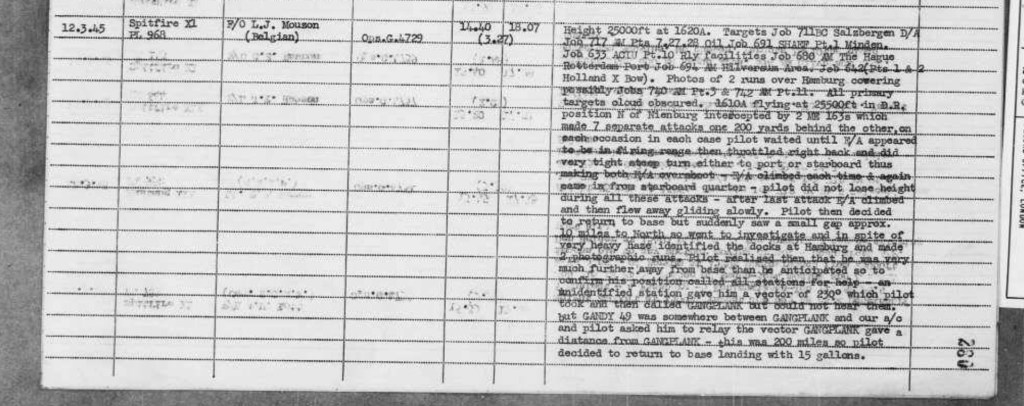 12.3.45 Spitfire XI F/O L.J. Mouson 14.40 18.07 Height 25000ft at 1620A. Targets Job 711BC Salzbergen D/A
PL 968 (Belgian) Ops.G.4729 (3.27) Job 717 AM Pts 7.27.28 Oil Job 691 SHAEF Pt.1 Minden.
Job 633 Pt.10 Rly facilities Job 680 AM The Hague
Rotterdam Port Job 694 AM Hilversum Area. Job 642(Pts 1 & 2
Holland X Bow). Photos of 2 runs over Hamburg covering
possibly Jobs 740 AM Pt.3 & 742 AM Pt.11. All primary
targets cloud obscured. 1610A flying at 25500ft in D.R.
position N of Nienburg intercepted by 2 ME 163s which
made 7 separate attacks one 200 yards behind the other, on
each occasion in each case pilot waited until E/A appeared
to be in firing range then throttled right back and did
very tight steep turn either to port or starboard thus
making both E/A overshoot - E/A climbed each time & again
came in from starboard quarter - pilot did not lose height
during all these attacks - after last attack E/A climbed
and then flew away gliding slowly. Pilot then decided
to return to base but suddenly saw a small gap approx.
10 miles to North so went to investigate and in spite of
very heavy haze identified the docks at Hamburg and made
2 photographic runs. Pilot realised then that he was very
much further away from base than he anticipated so to
confirm his position called all stations for help - an
unidentified station gave him a vector of 230° which pilot
took and then called GANGPLANK but could not hear them.
but GANDY 49 was somewhere between GANGPLANK and our a/c
and pilot asked him to relay the vector GANGPLANK gave a
distance from GANGPLANK - this was 200 miles so pilot
decided to return to base landing with 15 gallons.